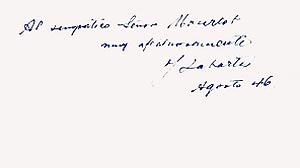 Al simpático Senor Mourlot
muy afectuosamente
Agosto 46